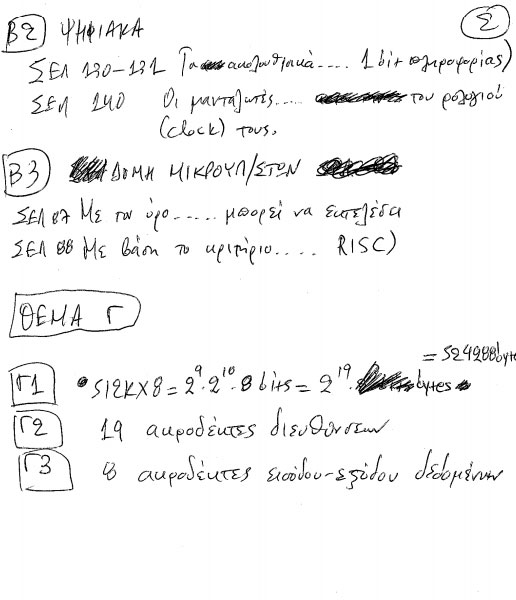 Σ
Β2 ΨΗΦΙΑΚΑ
ΣΕΛ 130-131 Τα ακολουθιακά.... 1 bit πληροφορίας)
ΣΕΛ 140 Οι μανταλωτές..... του ρολογιού
(clock) τους.
Β3 ΔΟΜΗ ΜΙΚΡΟΥΠ/ΣΤΩΝ
ΣΕΛ 87 Με τον όρο...... μπορεί να εκτελέσει
ΣΕΛ 88 Με βάση το κριτήριο..... RISC)
ΘΕΜΑ Γ
= 524288 bytes
Γ1 • 512K×8 = 2^9 · 2^10 · 8 bits = 2^19 · bytes
Γ2 19 ακροδέκτες διευθύνσεων
Γ3 8 ακροδέκτες εισόδου-εξόδου δεδομένων